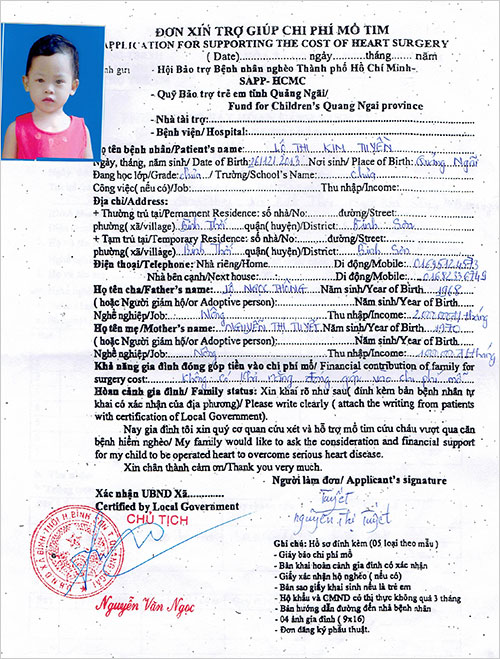 ĐƠN XIN TRỢ GIÚP CHI PHÍ MỔ TIM
APPLICATION FOR SUPPORTING THE COST OF HEART SURGERY
( Date)..............ngày.............tháng........ năm
gửi - Hội Bảo trợ Bệnh nhân nghèo Thành phố Hồ Chí Minh-
SAPP- HCMC
- Quỹ Bảo trợ trẻ em tỉnh Quảng Ngãi/
Fund for Children's Quang Ngai province
- Nhà tài trợ:
- Bệnh viện/ Hospital:
Họ tên bệnh nhân/Patient's name: LÊ THỊ KIM TUYỀN
Ngày, tháng, năm sinh/ Date of Birth: Nơi sinh/ Place of Birth: Quảng Ngãi
Đang học lớp/Grade: chưa / Trường/School's Name: chưa
Công việc( nếu có)/Job: Thu nhập/Income:
Địa chỉ/Address:
+ Thường trú tại/Permament Residence: số nhà/No: đường/Street:
phường( xã/village) Bình Thới quận( huyện)/District: Bình Sơn
+ Tạm trú tại/Temporary Residence: số nhà/No: đường/Street:
phường( xã/village) Bình Thới quận( huyện)/District: Bình Sơn
Điện thoại/Telephone: Nhà riêng/Home Di động/Mobile:
Nhà bên cạnh/Next house: Di động/Mobile:
Họ tên cha/Father's name: LÊ NGỌC THÔNG Năm sinh/Year of Birth 1968
( hoặc Người giám hộ/or Adoptive person): Năm sinh/Year of Birth
Nghề nghiệp/Job: Nông Thu nhập/Income: /tháng
Họ tên mẹ/Mother's name: NGUYỄN THỊ TUYẾT Năm sinh/Year of Birth 1970
( hoặc Người giám hộ/or Adoptive person): Năm sinh/Year of Birth
Nghề nghiệp/Job: Nông Thu nhập/Income: /tháng
Khả năng gia đình đóng góp tiền vào chi phí mổ/ Financial contribution of family for
surgery cost: không có khả năng đóng góp vào chi phí mổ
Hoàn cảnh gia đình/ Family status: Xin khai rõ như sau( đính kèm bản bệnh nhân tự
khai có xác nhận của địa phương)/ Please write clearly ( attach the writing from patients
with certification of Local Government).
Nay gia đình tôi xin quý cơ quan cứu xét và hỗ trợ mổ tim cứu cháu vượt qua căn
bệnh hiểm nghèo/ My family would like to ask the consideration and financial support
for my child to be operated heart to overcome serious heart disease.
Xin chân thành cảm ơn/Thank you very much.
Người làm đơn/ Applicant's signature
Xác nhận UBND Xã.............
Certified by Local Government
CHỦ TỊCH
Tuyết
Nguyễn Thị Tuyết
Nguyễn Văn Ngọc
Ghi chú: Hồ sơ đính kèm (05 loại theo mẫu )
- Giấy báo chi phí mổ
- Bản khai hoàn cảnh gia đình có xác nhận
- Giấy xác nhận hộ nghèo ( nếu có)
- Bản sao giấy khai sinh nếu là trẻ em
- Hộ khẩu và CMND có thị thực không quá 3 tháng
- Bản hướng dẫn đường đến nhà bệnh nhân
- 04 ảnh gia đình ( 9x16)
- Đơn đăng ký phẫu thuật.